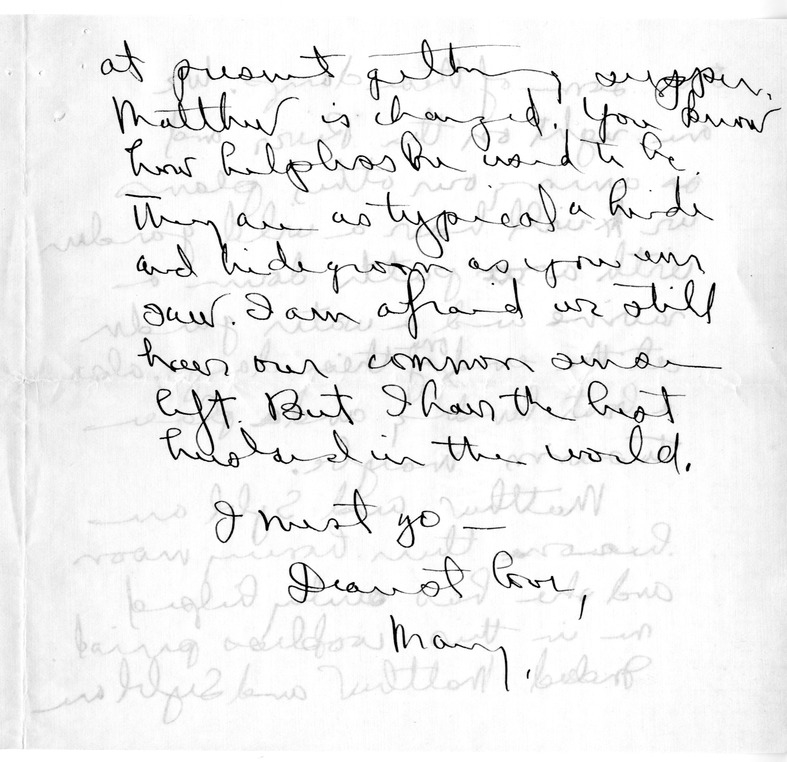 at present getting supper.
Matthew is changed. You know
how helpless he used to be.
They are as typical a bride
and bridegroom as you ever
saw. I am afraid we still
have our common sense
left. But I have the best
husband in the world.
I must go —
Dearest love,
Mary.